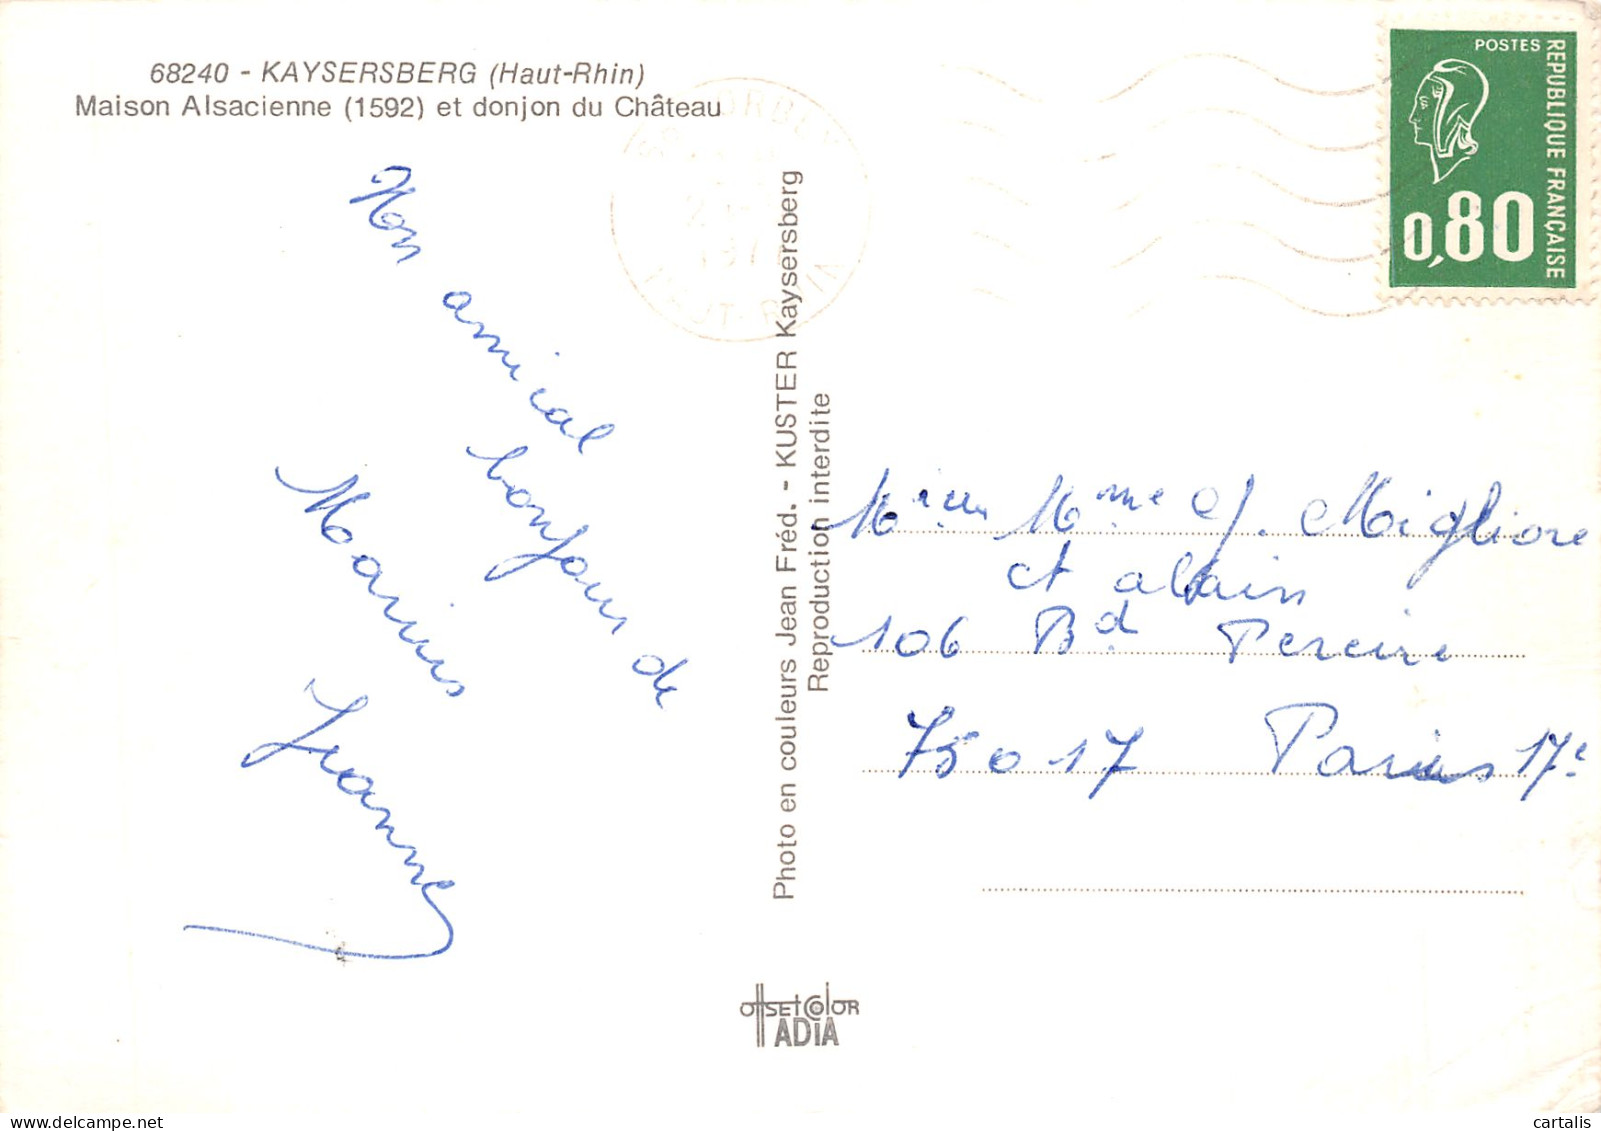 68240 - KAYSERSBERG (Haut-Rhin)
Maison Alsacienne (1592) et donjon du Château
Mon
amical
bonjour de
Marius
Jeanne
Photo en couleurs Jean Fréd. - KUSTER Kaysersberg
Reproduction interdite
POSTES
REPUBLIQUE FRANÇAISE
0,80
HAUT-RHIN
Mme J. Migliore
et alain
106 Bd Pereire
75017 Paris 17e
OffSET COlOR
ADIA
cartalis